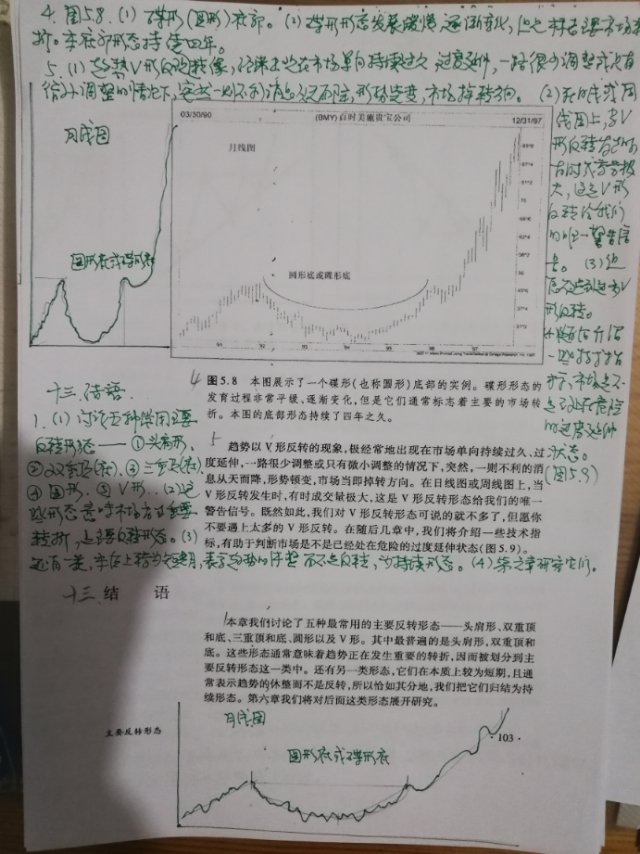 4. 图5.8. (1) 碟形(圆形)底部. (2) 碟形形态发展缓慢逐渐变化, 但它标志主要市场转
折. 本底部形态持续四年.
5. (1) 趋势V形反转现象, 经常出现在市场单向持续过久 过度延伸, 一路很少调整或只有
微小调整的情况下, 突然一则不利消息从天而降, 形势突变, 市场掉转方向. (2) 在日线或周
线图上, 当V
形反转发生时
有时成交量极
大, 这是V形
反转给我们
的唯一警告信
号. (3)
月线图
圆形底或碟形底
03/30/90
(BMY) 百时美施贵宝公司
12/31/97
月线图
圆形底或碟形底
4
图5.8 本图展示了一个碟形(也称圆形)底部的实例。碟形形态的
发育过程非常平缓、逐渐变化,但是它们通常标志着主要的市场转
折。本图的底部形态持续了四年之久。
十三. 结语
1. (1) 讨论五种常用主要
反转形态—— ①头肩形.
②双重顶(底). ③三重顶(底)
④圆形. ⑤V形. (2) 这
些形态意味市场有重要
转折, 是主要反转形态. (3)
还有一类, 本质上较为短期, 表示趋势的休整而不是反转, 为持续形态. (4) 第六章研究它们.
状态.
(图5.9)
5
趋势以V形反转的现象,极经常地出现在市场单向持续过久、过
度延伸,一路很少调整或只有微小调整的情况下,突然,一则不利的消
息从天而降,形势顿变,市场当即掉转方向。在日线图或周线图上,当
V形反转发生时,有时成交量极大,这是V形反转形态给我们的唯一
警告信号。既然如此,我们对V形反转形态可说的就不多了,但愿你
不要遇上太多的V形反转。在随后几章中,我们将介绍一些技术指
标,有助于判断市场是不是已经处在危险的过度延伸状态(图5.9)。
十三 结 语
本章我们讨论了五种最常用的主要反转形态——头肩形、双重顶
和底、三重顶和底、圆形以及V形。其中最普遍的是头肩形,双重顶和
底。这些形态通常意味着趋势正在发生重要的转折,因而被划分到主
要反转形态这一类中。还有另一类形态,它们在本质上较为短期,且通
常表示趋势的休整而不是反转,所以恰如其分地,我们把它们归结为持
续形态。第六章我们将对后面这类形态展开研究。
月线图
圆形底或碟形底
主要反转形态
·103·